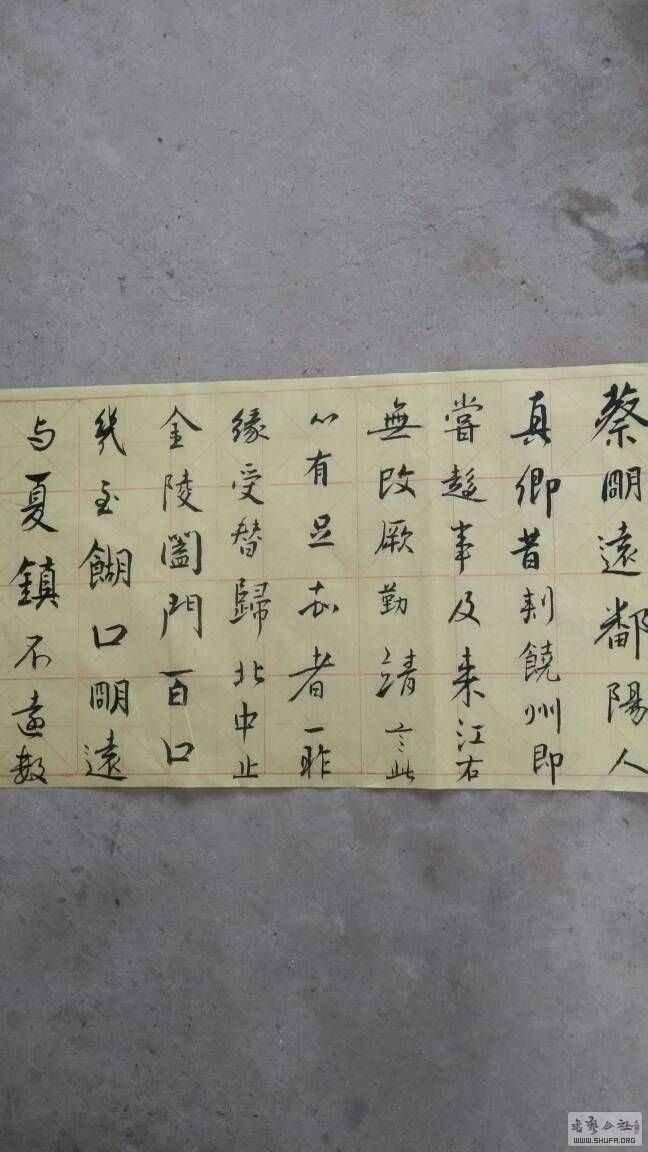 蔡明遠鄱陽人
真卿昔刺饒州即
嘗趨事及来江右
無改厥勤靖言此
心有足志者一昨
緣受替歸北中止
金陵闔門百口
幾至餬口明遠
与夏鎮不遠數
書藝公社
WWW.SHUFA.ORG